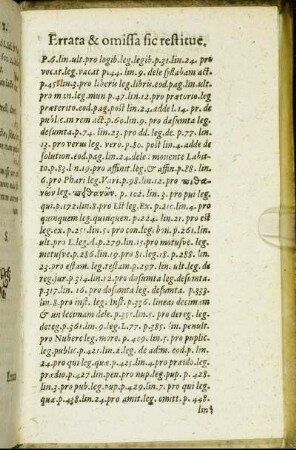 Errata & omissa sic restitue.
P.6.lin.ult.pro logib.leg.legib.p.31.lin.24. pro
vocat.leg.vacat p.44.lin.9. dele syllabam act.
p.45.lin.3.pro liberis leg.libris.eod.pag.lin.ult.
pro m en.leg.mun.p.47.lin.12.pro prætorio.leg.
præterito.eod.pag.post lin.24.adde l.14. pr. de
public.in rem act.p.60.lin.9. pro dasumta leg.
desumta.p.74. lin.23. pro dd.leg.de. p.77. lin.
13.pro verui leg. vero. p.80. post lin.4.adde de
solution.eod.pag.lin.24.dele: monente Labit-
to.p.83.l.n.19.pro affinit.leg.& affin.p.88. lin.
6. pro Phari leg.Vari.p.98.lin.22. pro
leg. p. 102. lin.3. pro pui leg.
qui.p.172.lin.8.pro Est leg. Ex. p.210.lin.4. pro
quinquem leg.quinquen. p.224. lin.21. pro est
leg.ex.p.251.lin.5. pro con.leg. bon.p.261.lin.
ult.pro L.leg.d.p.279.lin.15.pro motusve. leg.
metusve.p.286.lin.19.pro 81.leg.18. p.288. lin.
23.pro estam.leg.restam.p.297. lin. ult.leg.de
reg.jur.p.314.lin.12.pro dosumta leg.desumta.
p.317. lin.16. pro dosumta leg.desumta. p.333.
lin.8.pro inst.leg. Inst.p.336. lineas decimam
& undecimam dele.p.355.lin.5. pro dereg. leg.
de reg.p.361.lin.9.leg.L.77. p.385. lin. penult.
pro Nubere leg.more. p.409. lin.5. pro puplic.
leg.public.p.421.lin.2.leg. de adim. eod. p. lin.
24.pro qui leg.quæ.p.425.lin.4.pro prædo.leg.
prædio.p.427.lin.pen.pro nup.leg.pup. p.428.
lin.3.pro pub.leg.pup.p.429.lin.7. pro qui leg.
qua.p.438.lin.24.pro amit.leg.omitt. p.448.
lin